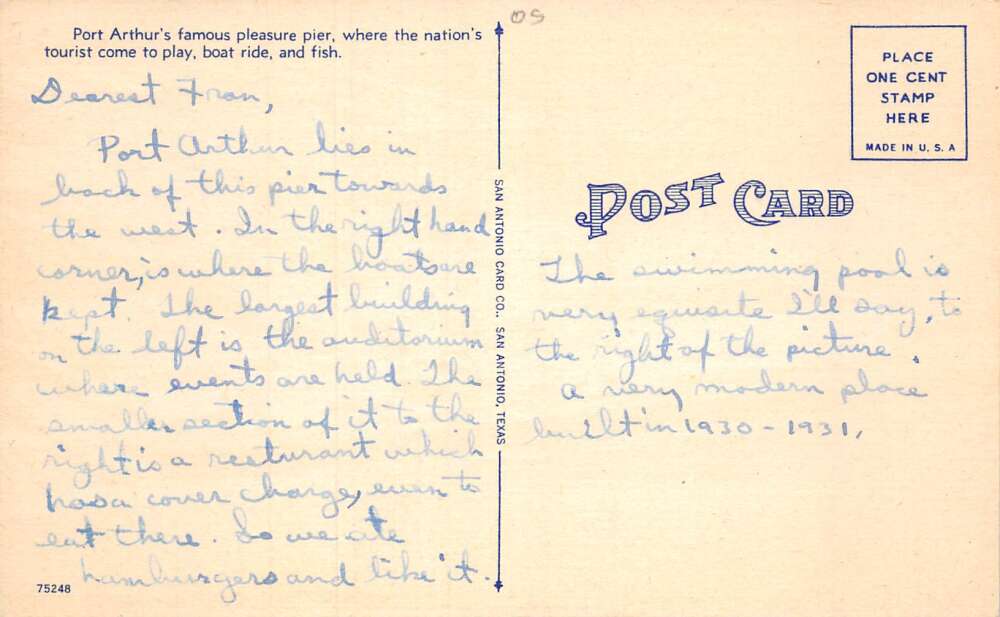 05
Port Arthur's famous pleasure pier, where the nation's
tourist come to play, boat ride, and fish.
Dearest Fran,
Port Arthur lies in
back of this pier towards
the west. In the right hand
corner, is where the boats are
kept. The largest building
on the left is the auditorium
where events are held. The
smaller section of it to the
right is a resturant which
has a cover charge, even to
eat there. So we ate
hamburgers and like it.
75248
SAN ANTONIO CARD CO., SAN ANTONIO, TEXAS
PLACE
ONE CENT
STAMP
HERE
MADE IN U. S. A
POST CARD
The swimming pool is
very equisite I'll say, to
the right of the picture.
a very modern place
built in 1930-1931,